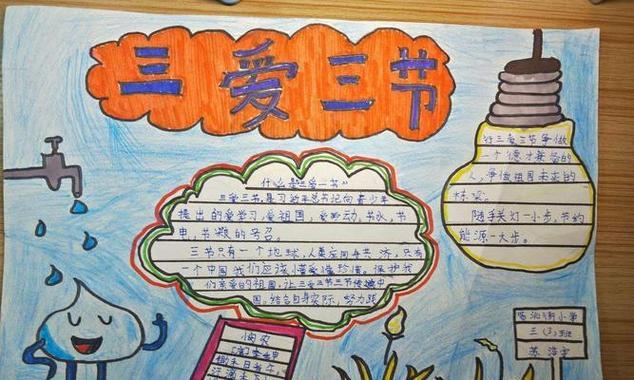 三爱三节
什么是"三爱三节"
三爱三节,是习近平总书记向青少年
提出的爱学习、爱祖国、爱劳动、节水、节
电、节粮的号召。
三节只有一个地球,人类应同舟共济,只有
一个中国我们应该懂爱懂珍惜,保护我
们亲爱的祖国,让三爱三节三节传遍中
国。结合自身实际,努力践
行三爱三节争做
一个德才兼备的
人,争做祖国未来的
栋梁。
随手关灯一小步,节约
能源一大步。
悯农
锄禾日当午,
汗滴禾下
小学
三(3)班